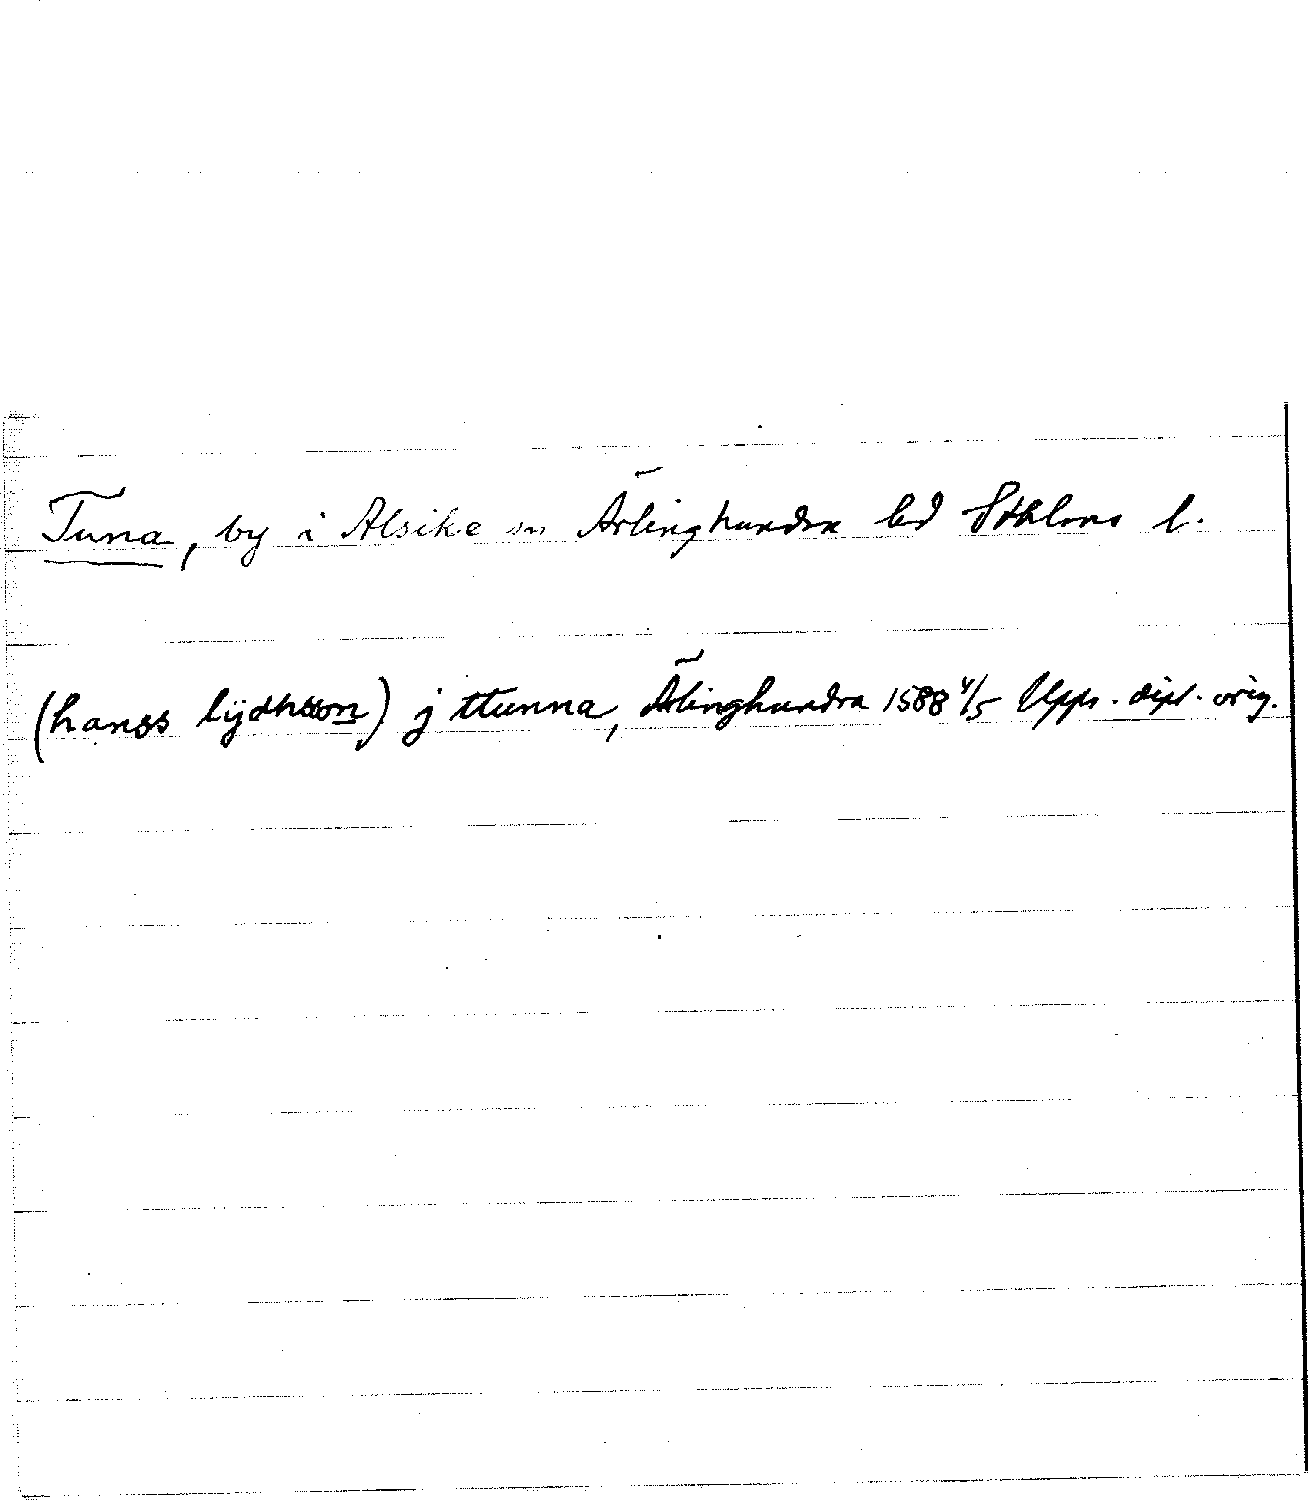 Tuna, by i Alsike sn Ärlinghundra hd Sthlms l.
(hanss lijdhsson) j ttunna, Ärlinghundra 1588 4/5 Upps. dipl. orig.